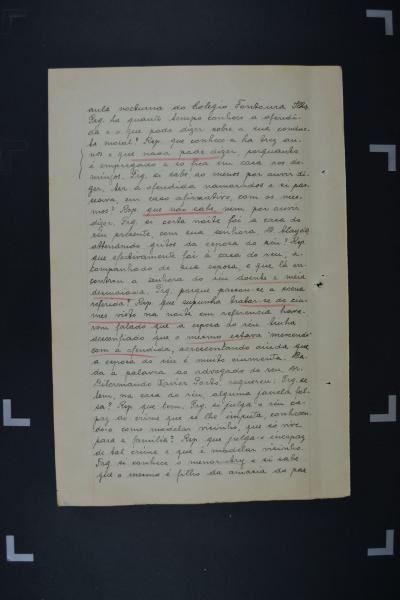 aula nocturna do Colegio Fontoura Ilha.
Prg. ha quanto tempo conhece a ofendi-
da e o que pode dizer sobre a sua condu-
ta moral? Resp. que conhece-a ha trez an-
nos e que nada pode dizer, porquanto
é empregado e só fica em casa aos do-
mingos. Prg. si sabe, ao menos por ouvir di-
zer, ter a ofendida namorados e si pas-
seava, em caso afirmativo, com os mes-
mos? Resp. que não sabe, nem por ouvir
dizer. Prg. si certa noite foi a casa do
réu presente, com sua senhora, D.
attendendo gritos da esposa do réu? Resp.
que efectivamente foi á casa do réu, a-
companhado de sua esposa, e que lá en-
controu a senhora do réu doente e meia
desmaiada. Prg. porque passou-se a scena
referida? Resp. que supunha tratar-se de ciu-
mes visto na noite em referencia have-
rem falado que a esposa do réu tinha
desconfiado que o mesmo estava "mexendo"
com a ofendida, acrescentando ainda que
a esposa do réu é muito ciumenta. Da-
da a palavra ao advogado do réu, dr.
Dilermando Xavier Porto, requereu: Prg. se
tem, na casa do réu, alguma janela fal-
sa? Resp. que tem. Prg. si julga o réu ca-
paz do crime que se lhe imputa, conhecen-
do-o como modelar visinho, que só vive
para a familia? Resp. que julga-o incapaz
de tal crime e que é modelar visinho.
Prg. si conhece o menor Ary e si sabe
que o mesmo é filho da amasia do pae